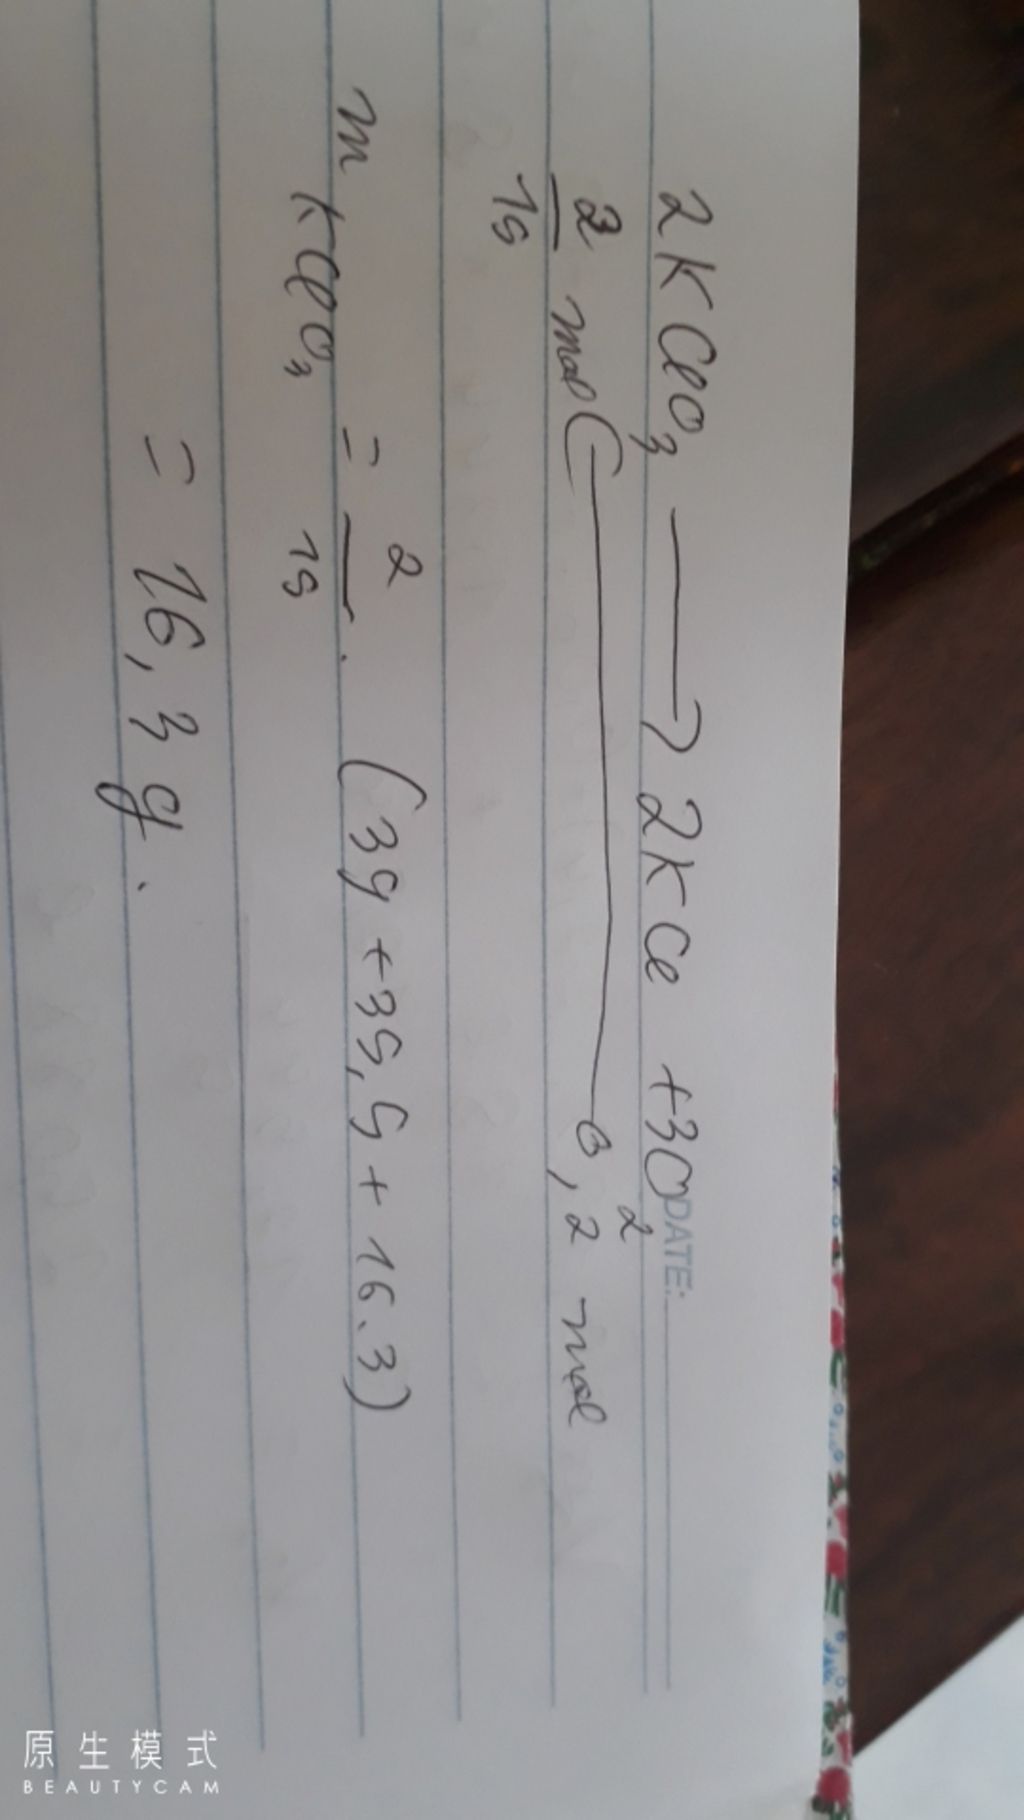 DATE:
2KClO3 → 2KCl + 3O2
2/15 mol ← 0,2 mol
mKClO3 = 2/15 . (39 + 35,5 + 16.3)
= 16,3 g.
原生模式
BEAUTYCAM